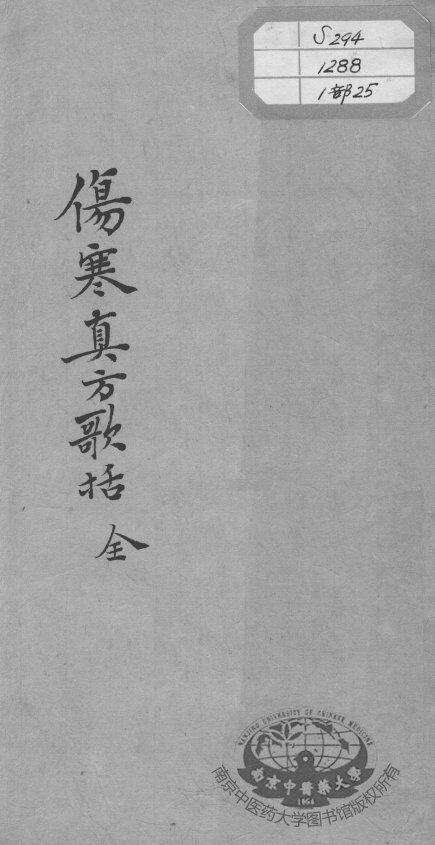 S294
1288
1部25
傷寒真方歌括 全
NANJING UNIVERSITY OF CHINESE MEDICINE
南京中醫藥大學
1954
南京中医药大学图书馆版权所有